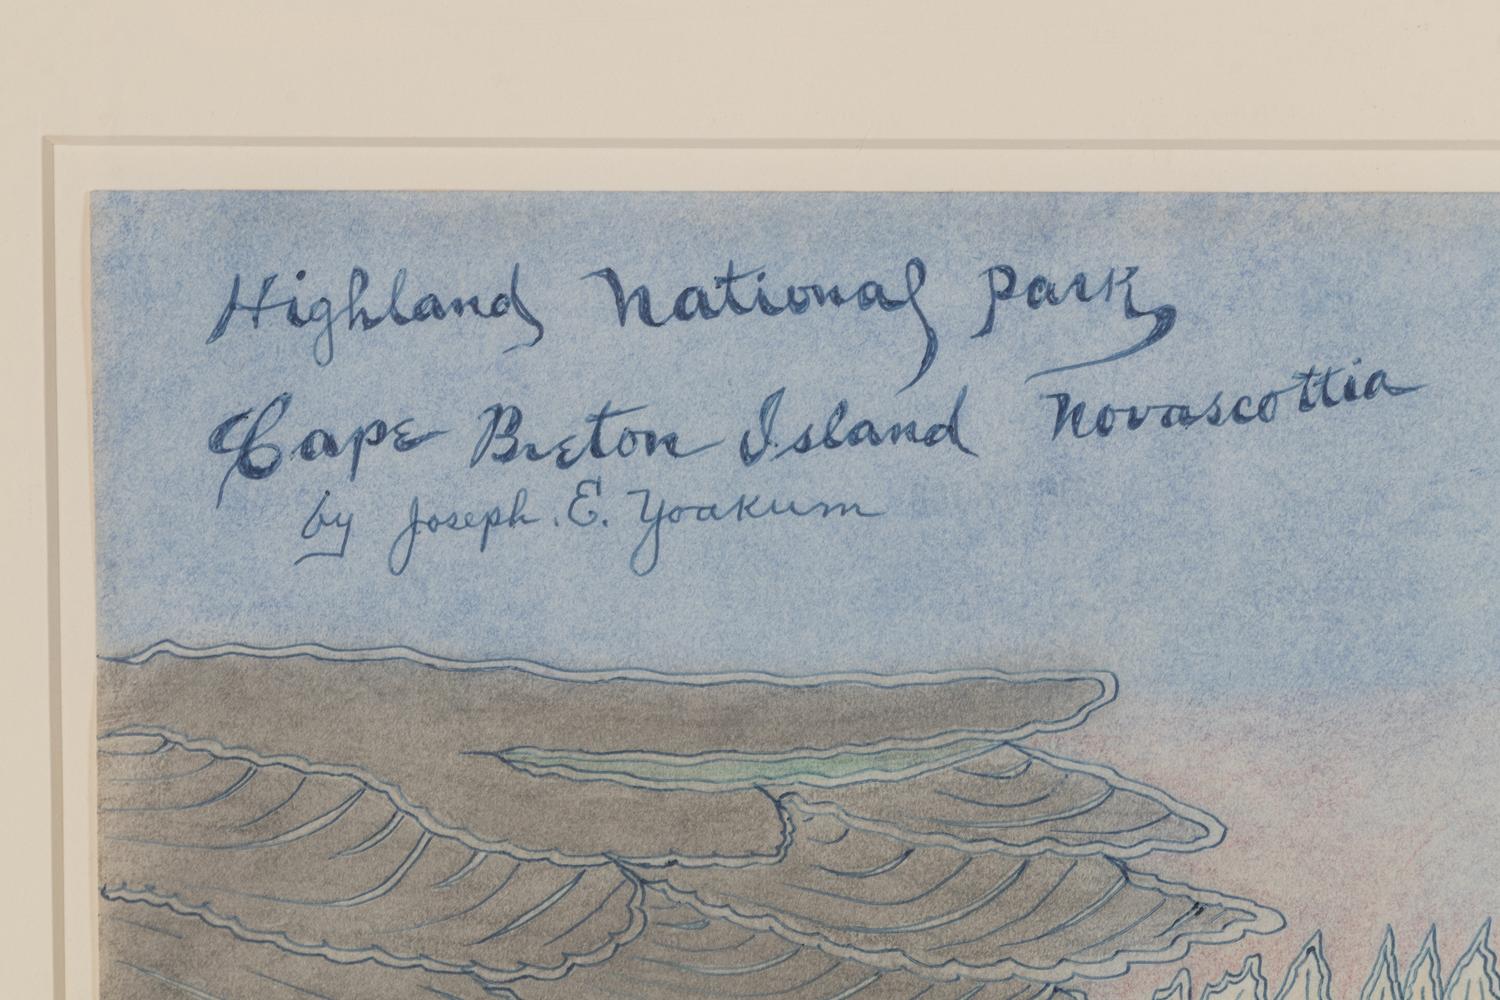 Highland National Park
Cape Breton Island Novascottia
by Joseph. E. Yoakum